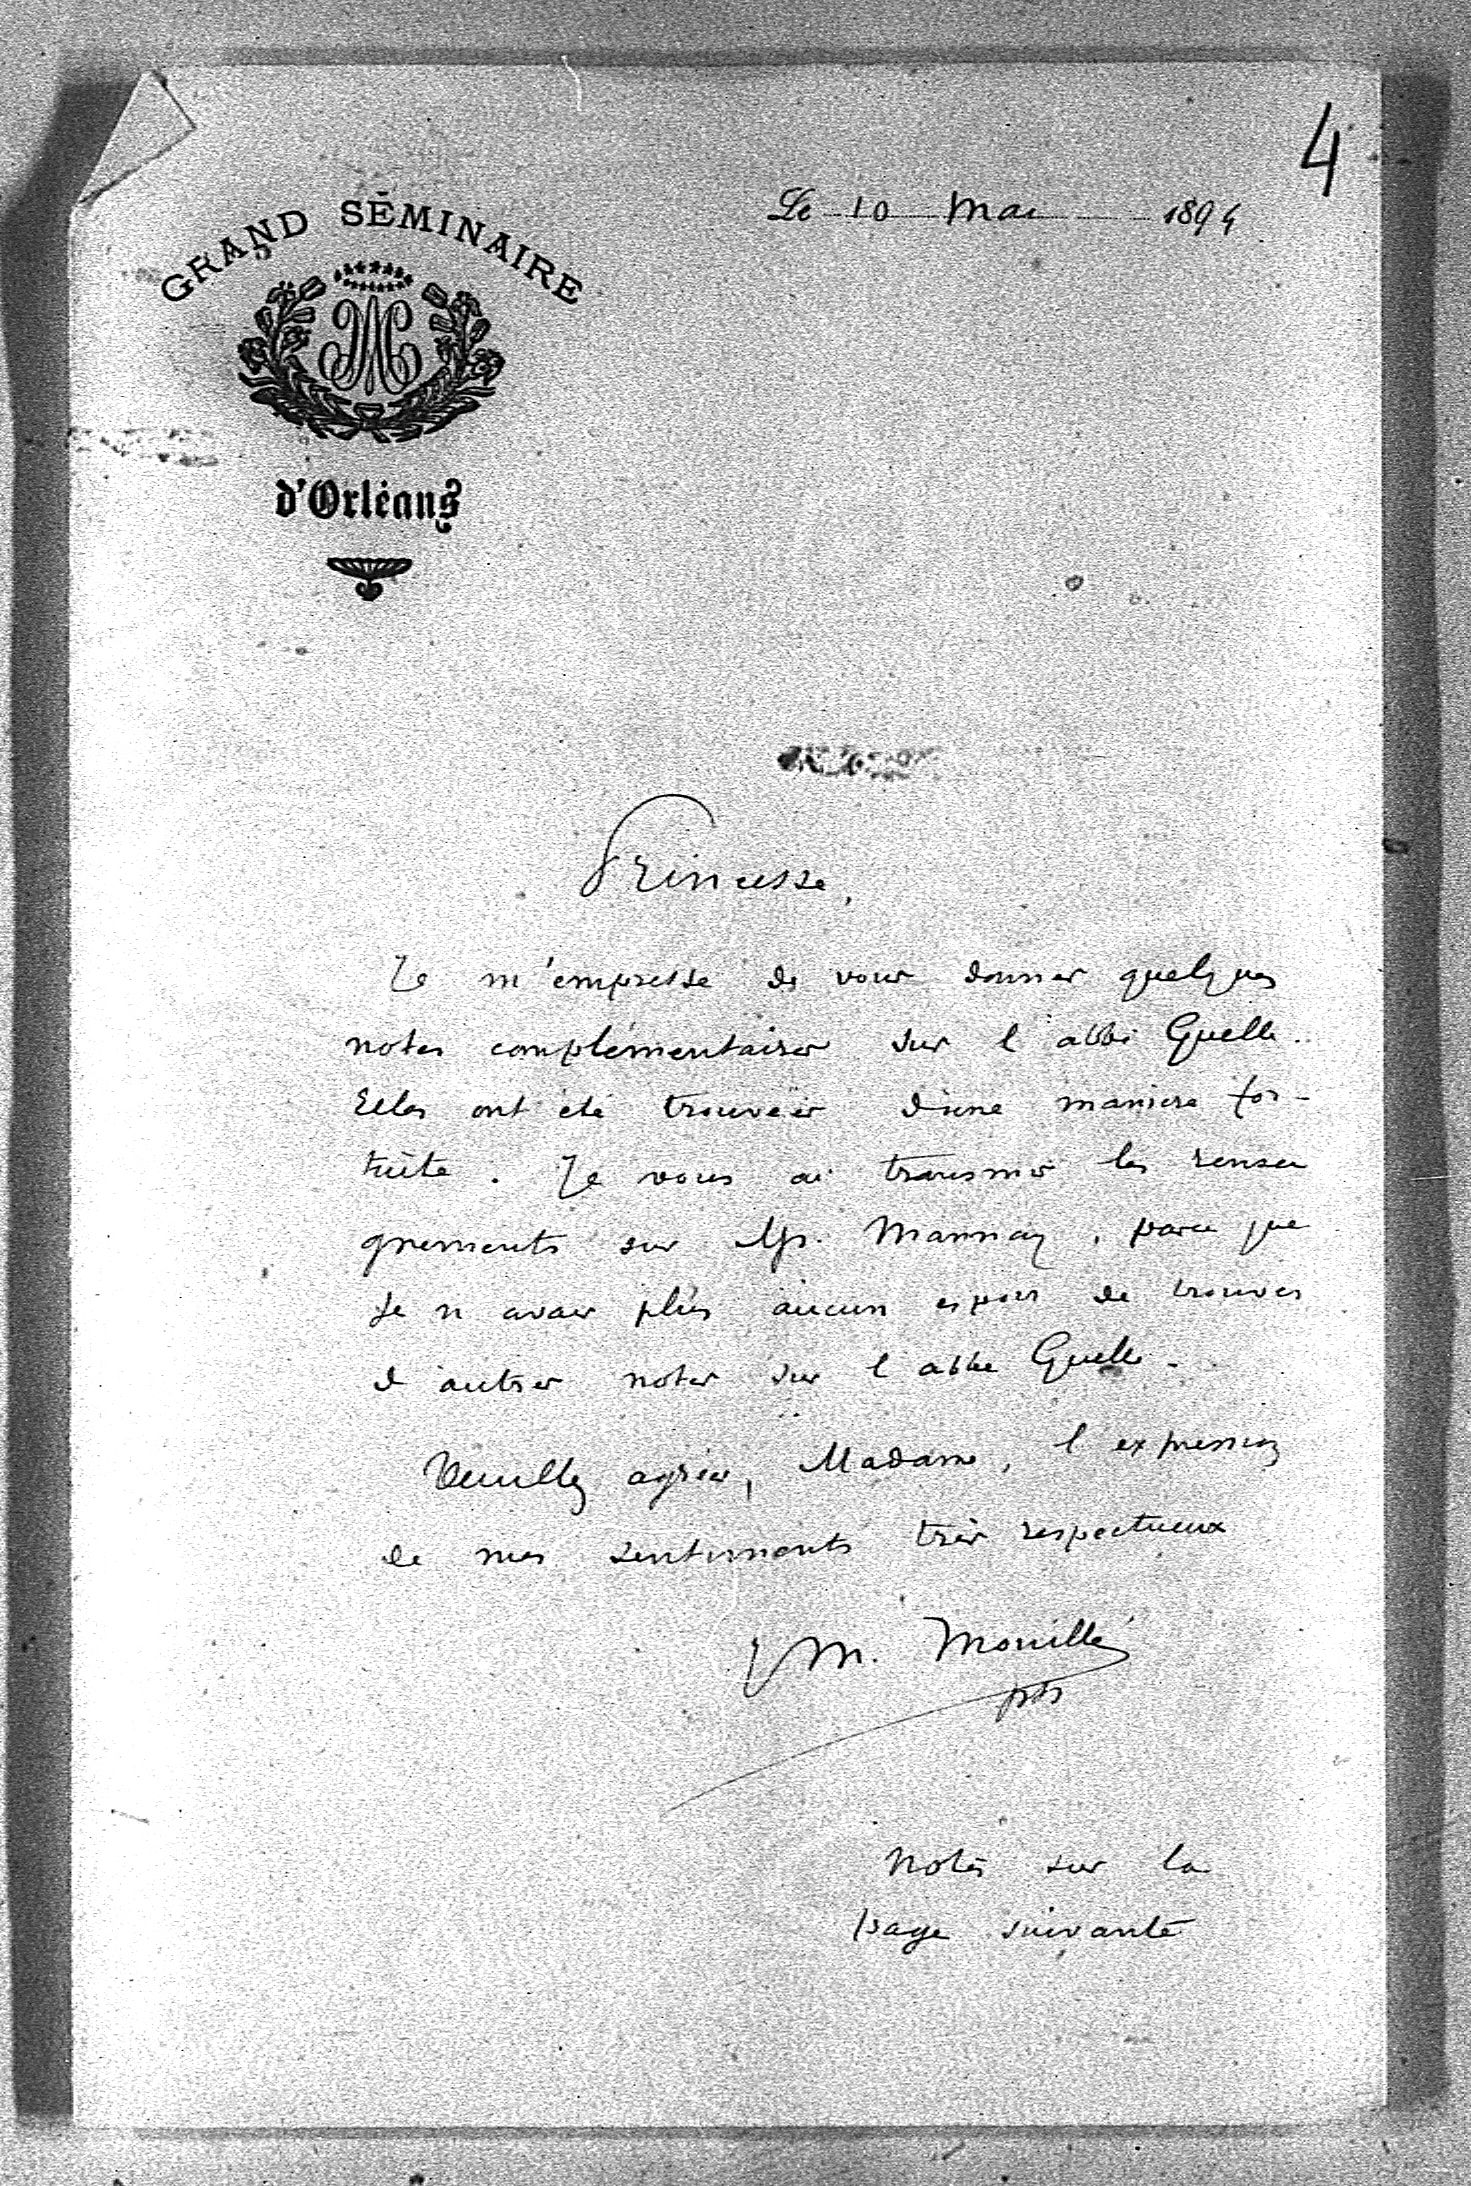 4
Le 10 Mai 1894
GRAND SÉMINAIRE
d'Orléans
Princesse,
Je m'empresse de vous donner quelques
notes complémentaires sur l'abbé Guelle.
Elles ont été trouvées d'une manière for-
tuite. Je vous ai transmis les rensei
gnements sur Mgr. Mannay, parce que
je n'avais plus aucun espoir de trouver
d'autres notes sur l'abbé Guelle.
Veuillez agréer, Madame, l'expression
de mes sentiments très respectueux
M. Mouillé
ptr
Notes sur la
page suivante